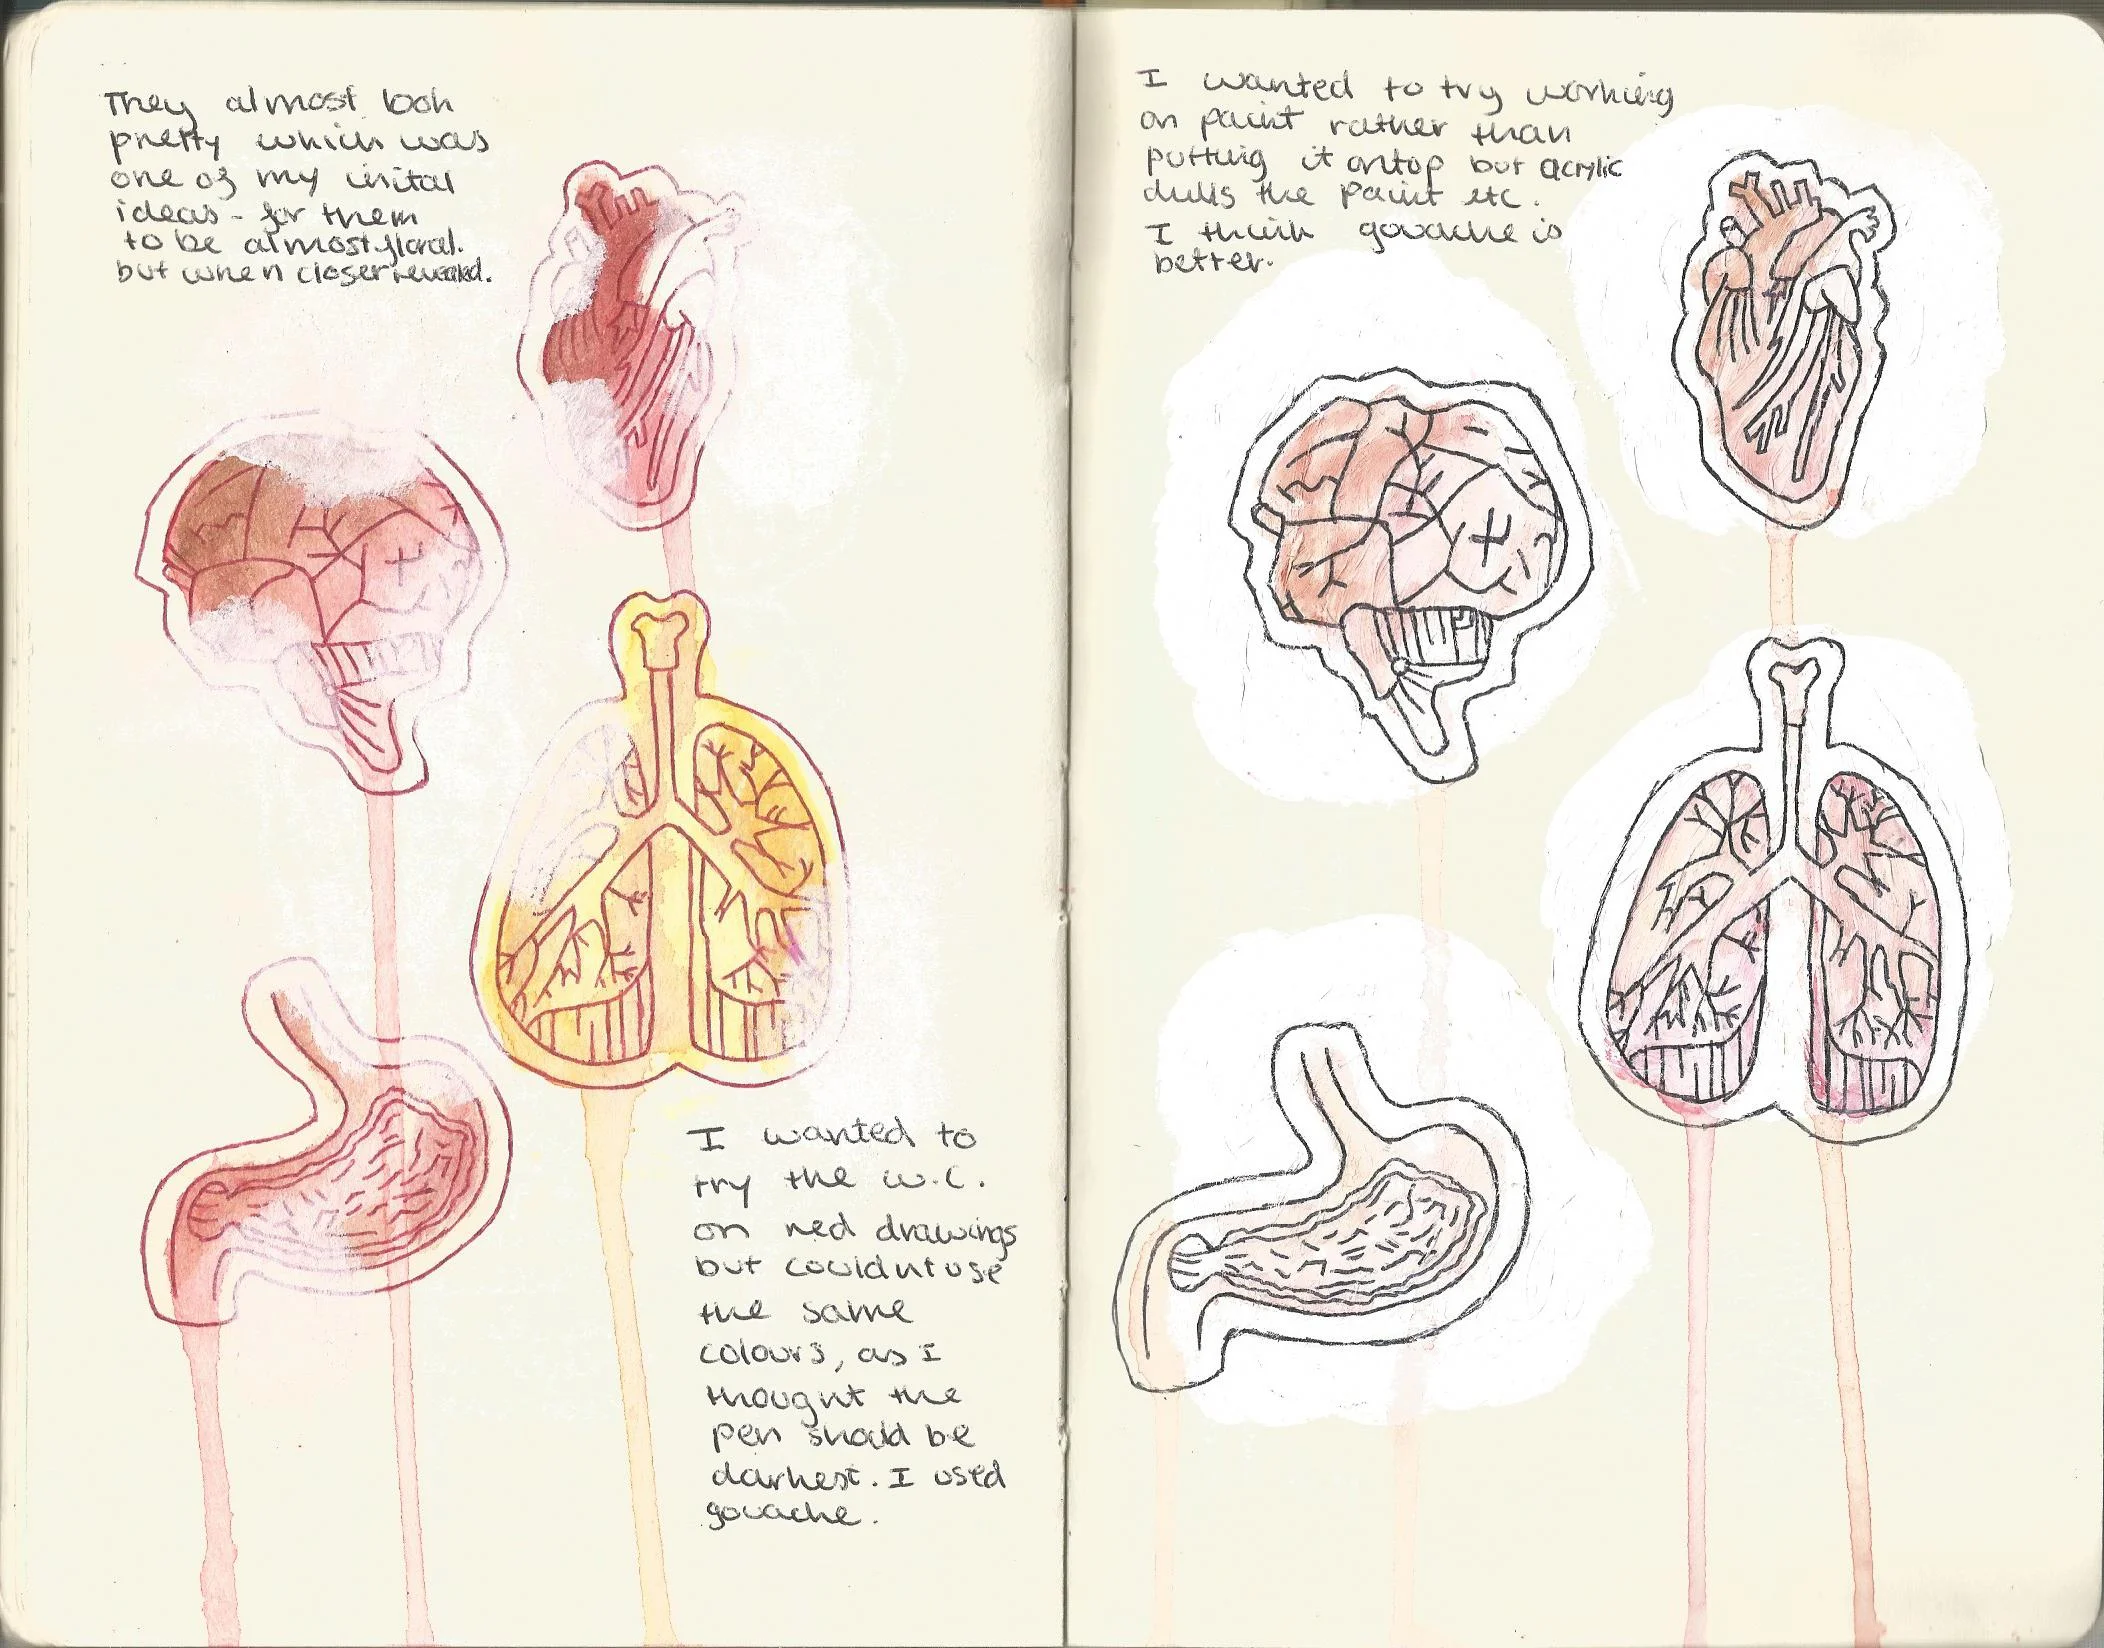 They almost look
pretty which was
one of my inital
ideas - for them
to be almost floral.
but when closer revealed.
I wanted to
try the w.c.
on red drawings
but couldnt use
the same
colours, as I
thought the
pen should be
darkest. I used
gouache.
I wanted to try working
on paint rather than
putting it ontop but acrylic
dulls the paint etc.
I think gouache is
better.